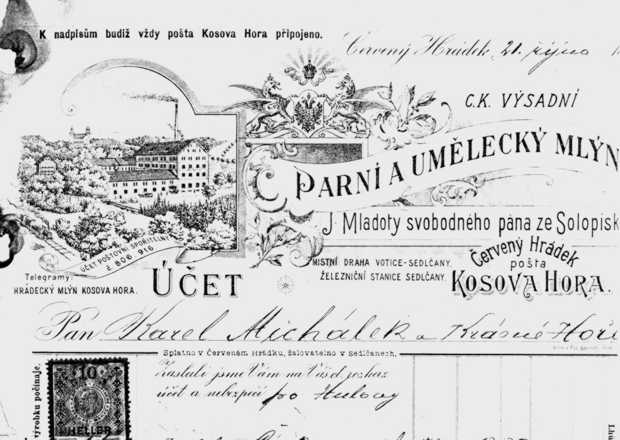 K nadpisům budiž vždy pošta Kosova Hora připojeno.
Červený Hrádek, 21. října
C.K. VÝSADNÍ
PARNÍ A UMĚLECKÝ MLÝN
J. Mladoty svobodného pána ze Solopisk
ÚČET POŠTOVNÍ SPOŘITELNY
č. 806 916
MÍSTNÍ DRAHA VOTICE-SEDLČANY,
ŽELEZNIČNÍ STANICE SEDLČANY.
Červený Hrádek
pošta
KOSOVA HORA.
Telegramy:
HRÁDECKÝ MLÝN KOSOVA HORA.
ÚČET
Pan Karel Michálek a Krásné Hoře
Splatno v Červeném Hrádku, žalovatelno v Sedlčanech.
Zaslali jsme Vám na Váš rozkaz
účet a nebezpečí pro
výrobku počínaje.
10
HELLER